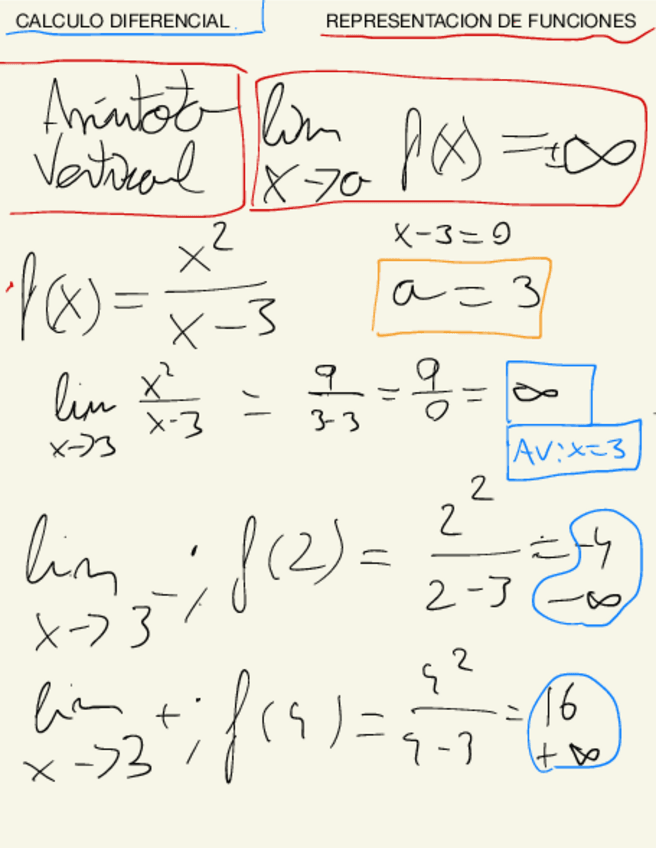 CALCULO DIFERENCIAL
REPRESENTACION DE FUNCIONES
Asíntota Vertical
lim x→a f(x) = ±∞
x-3=0
f(x) = x²/(x-3)
a = 3
lim x→3 x²/(x-3) = 9/(3-3) = 9/0 = ∞
AV: x=3
lim x→3⁻; f(2) = 2²/(2-3) = -4
-∞
lim x→3⁺; f(4) = 4²/(4-3) = 16
+∞